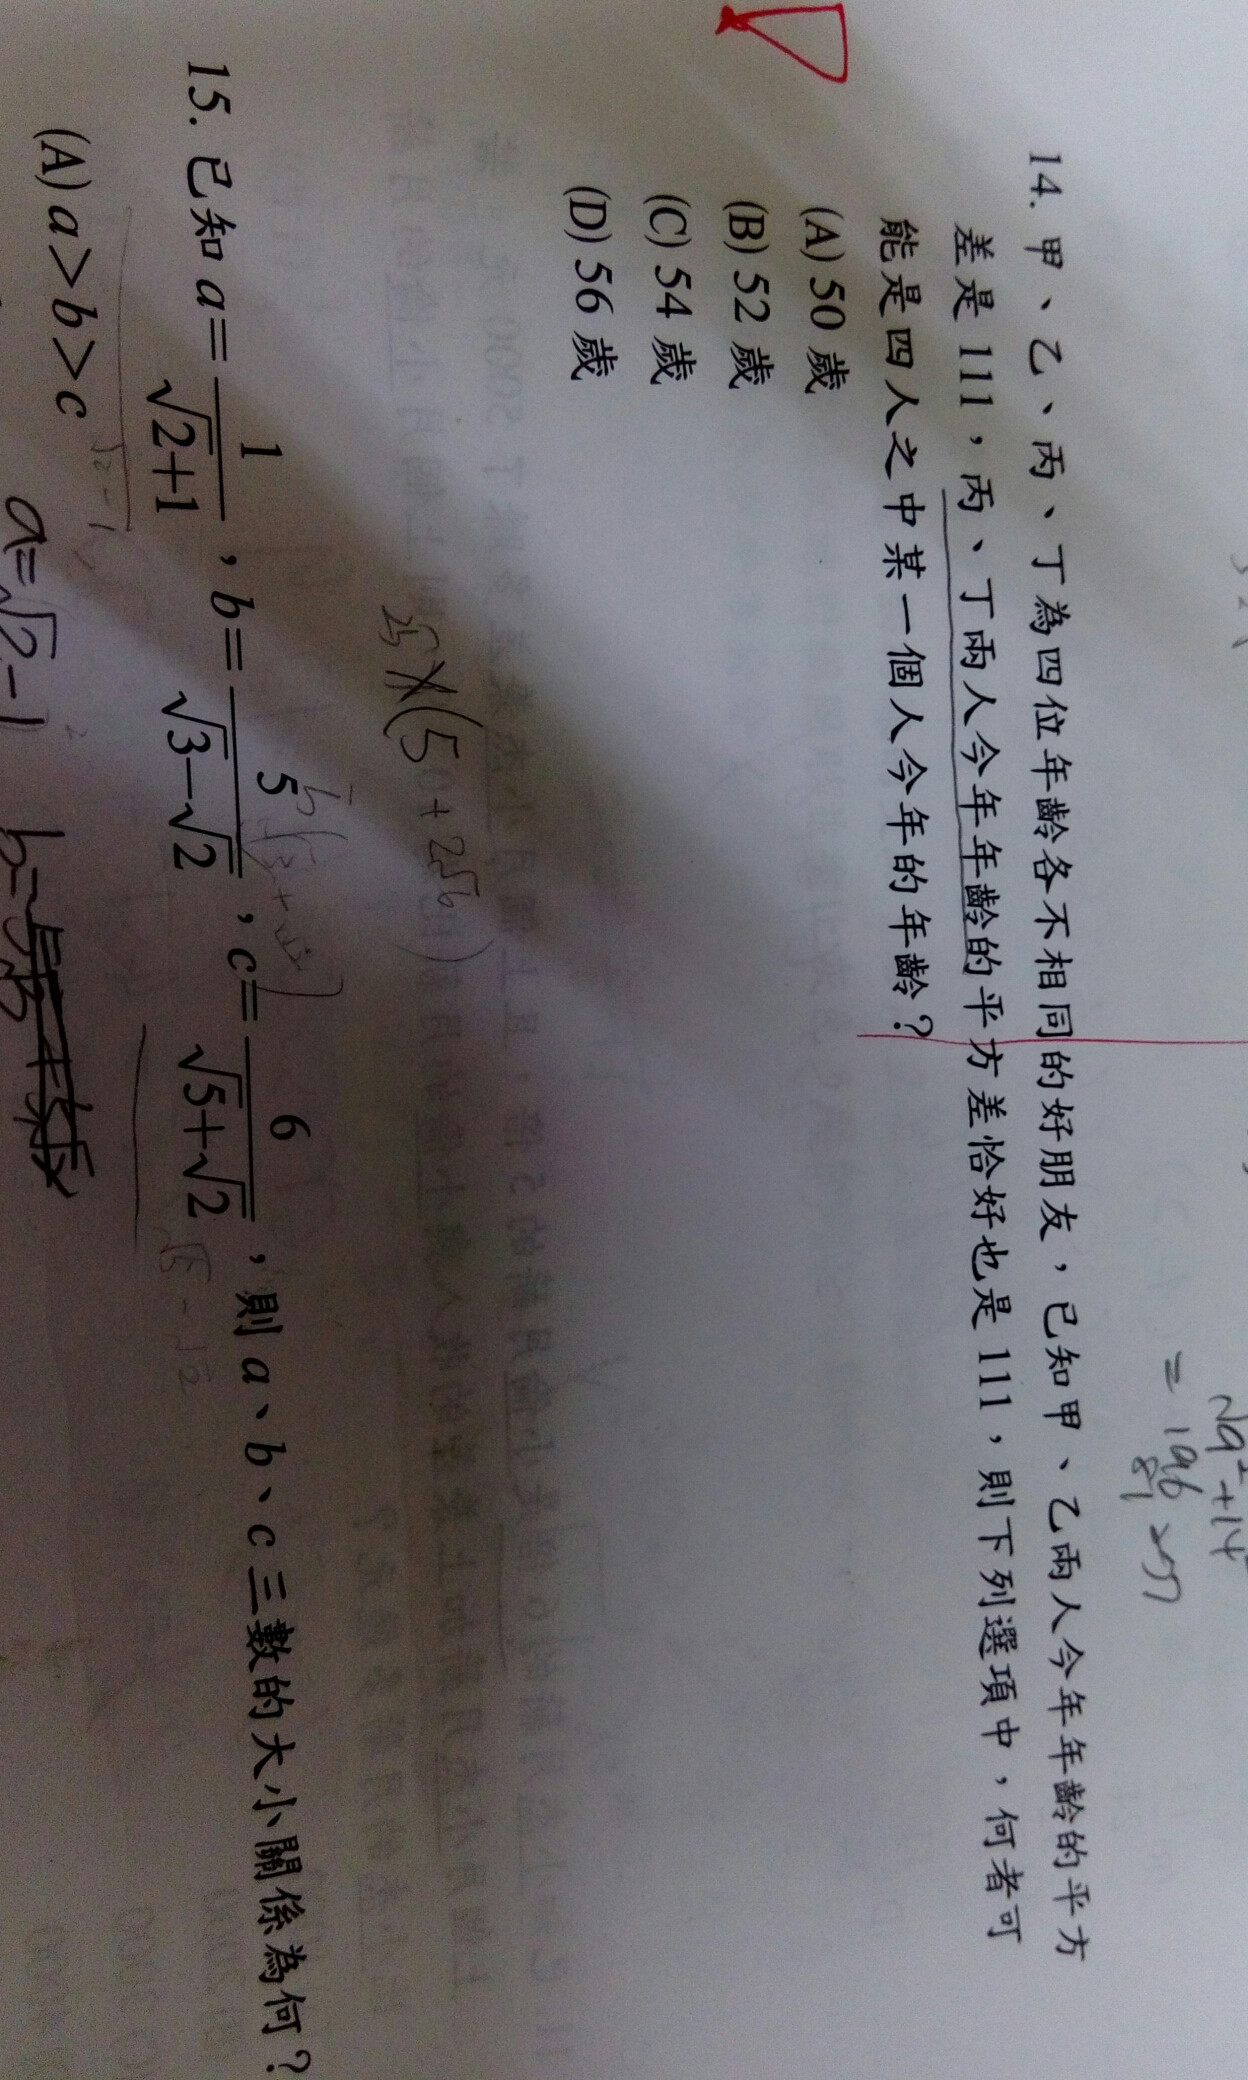 14. 甲、乙、丙、丁為四位年齡各不相同的好朋友，已知甲、乙兩人今年年齡的平方
差是 111，丙、丁兩人今年年齡的平方差恰好也是 111，則下列選項中，何者可
能是四人之中某一個人今年的年齡？
(A) 50 歲
(B) 52 歲
(C) 54 歲
(D) 56 歲
15. 已知 a=1/(√2+1)，b=5/(√3−√2)，c=6/(√5+√2)，則 a、b、c 三數的大小關係為何？
(A) a>b>c
√2-1
√5-√2
a=√2-1